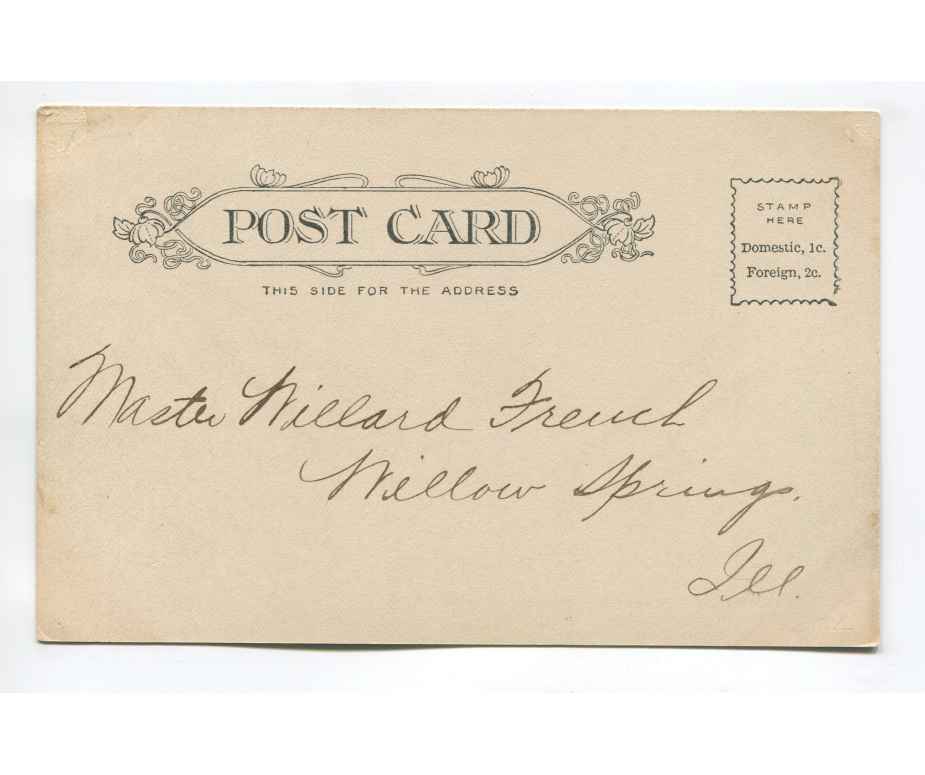 POST CARD
THIS SIDE FOR THE ADDRESS
STAMP
HERE
Domestic, 1c.
Foreign, 2c.
Master Willard French
Willow Springs.
Ill.